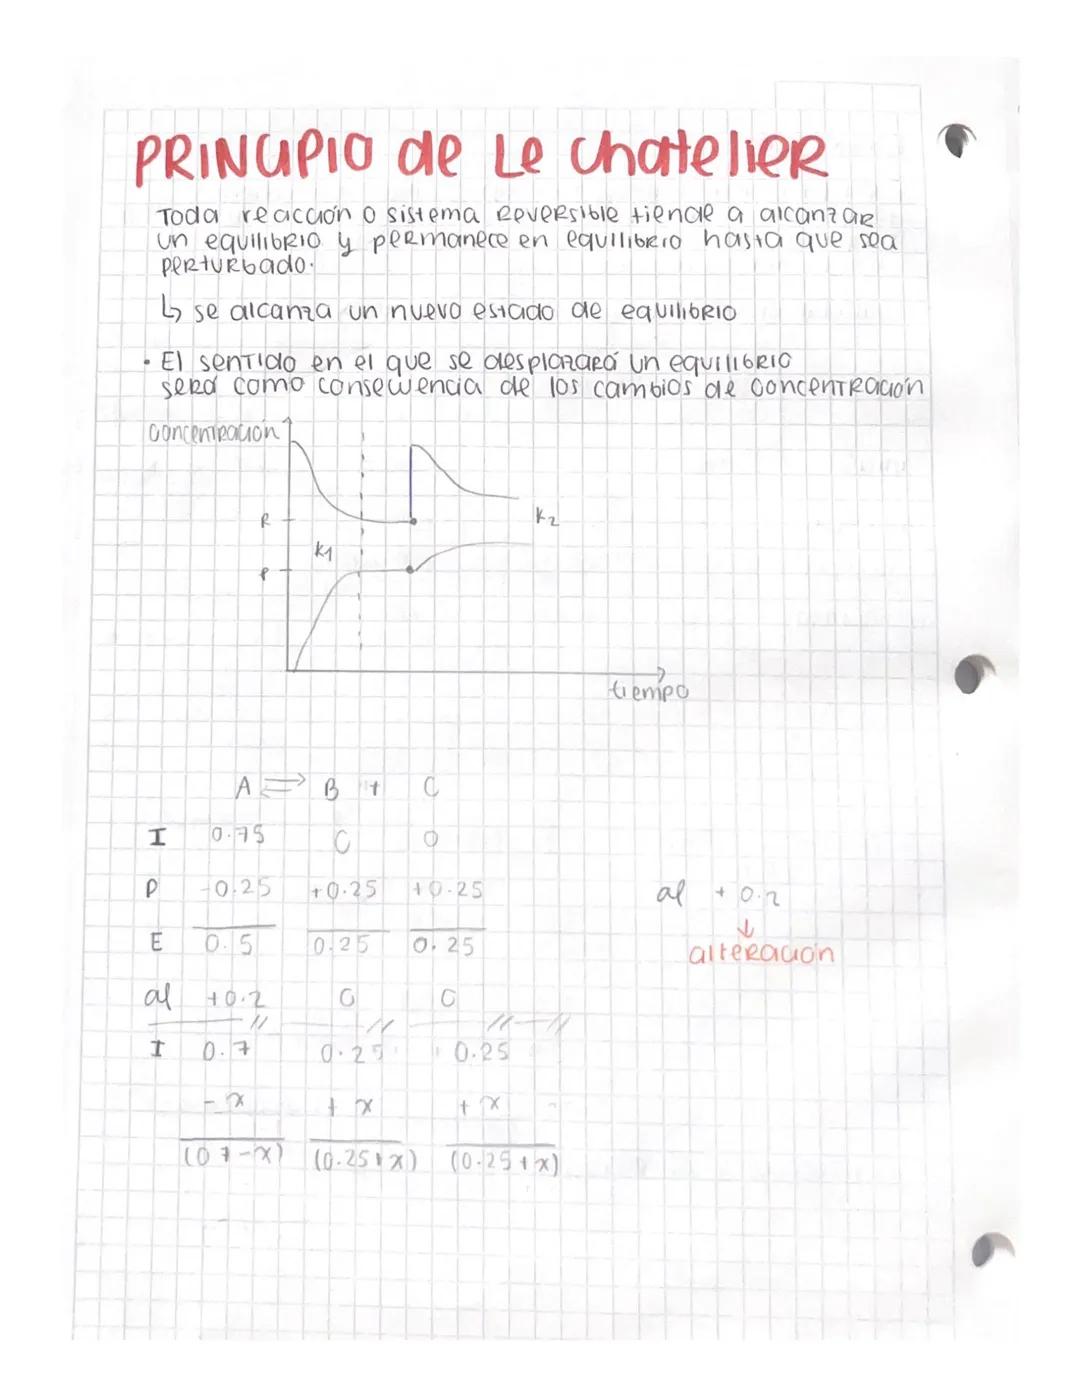 PRINCIPIO de Le Chatelier
Toda reacción o sistema Reversible tiende a alcanzar
un equilibrio y permanece en equilibrio hasta que sea
perturbado.
↳ se alcanza un nuevo estado de equilibrio
• El sentido en el que se desplazará un equilibrio
será como consecuencia de los cambios de concentración
concentración
R
K2
K1
P
tiempo
A ⇌ B + C
I 0.75 0 0
P -0.25 +0.25 +0.25 al +0.2
↓
E 0.5 0.25 0.25 alteración
al +0.2 0 0
I 0.7 0.25 0.25
-x +x +x
(0.7-x) (0.25+x) (0.25+x)